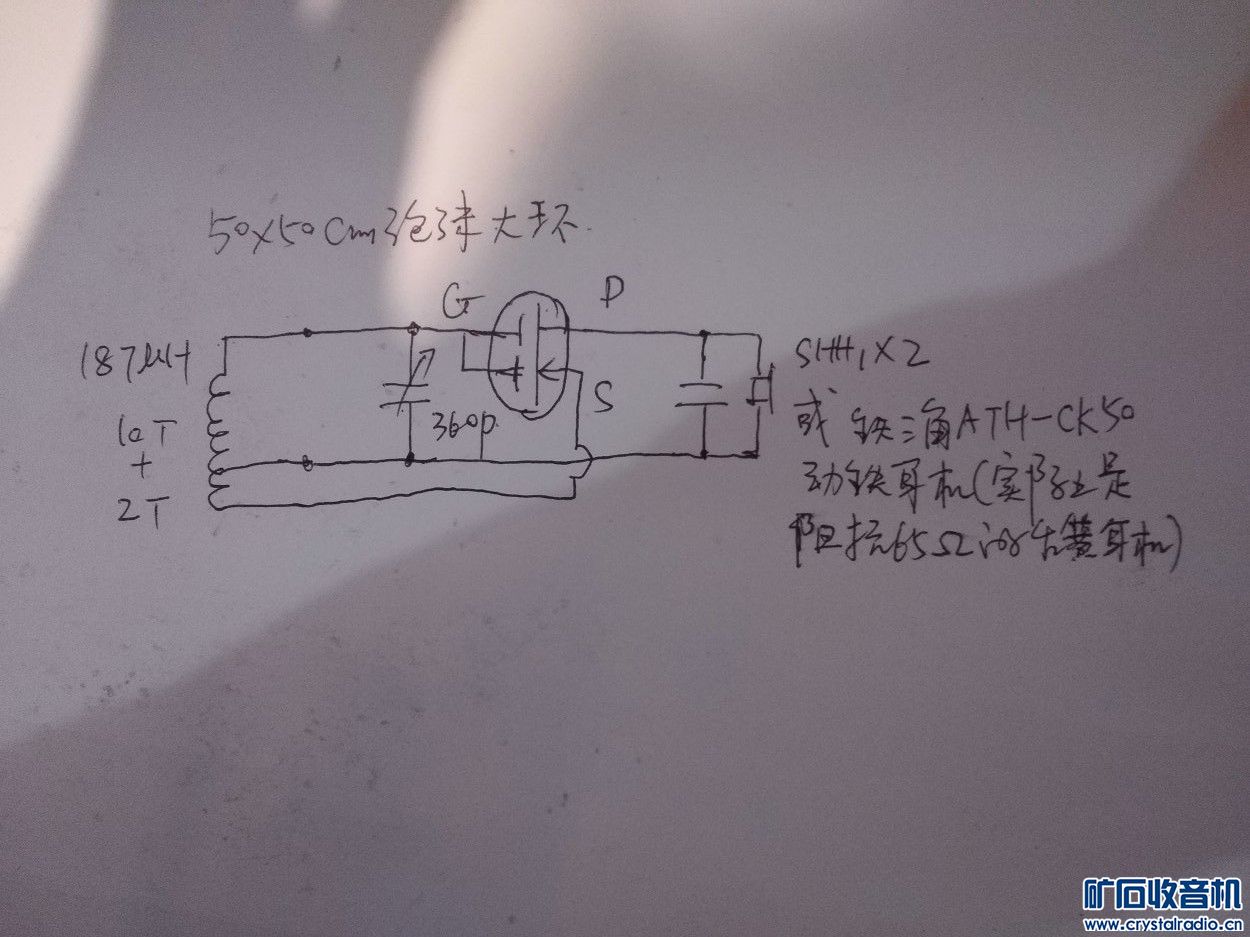 50x50cm泡沫大环.
G
D
187μH
S
10T
+
2T
360p
SHH,X2
或 铁三角ATH-CK50
动铁耳机(实际上是
阻抗65Ω的古董耳机)
矿石收音机
www.crystalradio.cn